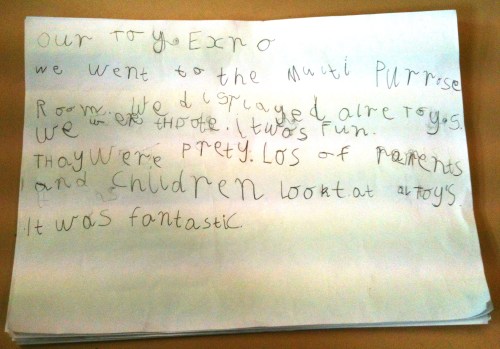 our Toy Expo
we went to the Multi Purrose
Room. We displayed alre Toys.
We were it was fun.
Thay were prety. Los of parents
and children lookt at al Toys
It was fantastic